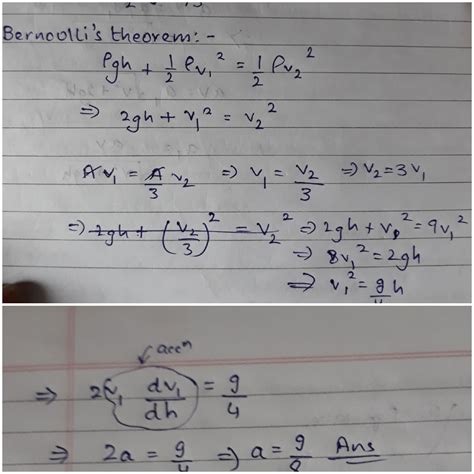 Bernoulli's theorem:-
ρgh + 1/2 ρv₁² = 1/2 ρv₂²
⇒ 2gh + v₁² = v₂²
A v₁ = A/3 v₂ ⇒ v₁ = v₂/3 ⇒ v₂ = 3v₁
⇒ 2gh + (v₂/3)² = v₂² ⇒ 2gh + v₁² = 9v₁²
⇒ 8v₁² = 2gh
⇒ v₁² = g/4 h
accⁿ
⇒ 2 v₁ dv₁/dh = g/4
⇒ 2a = g/4 ⇒ a = g/8 Ans